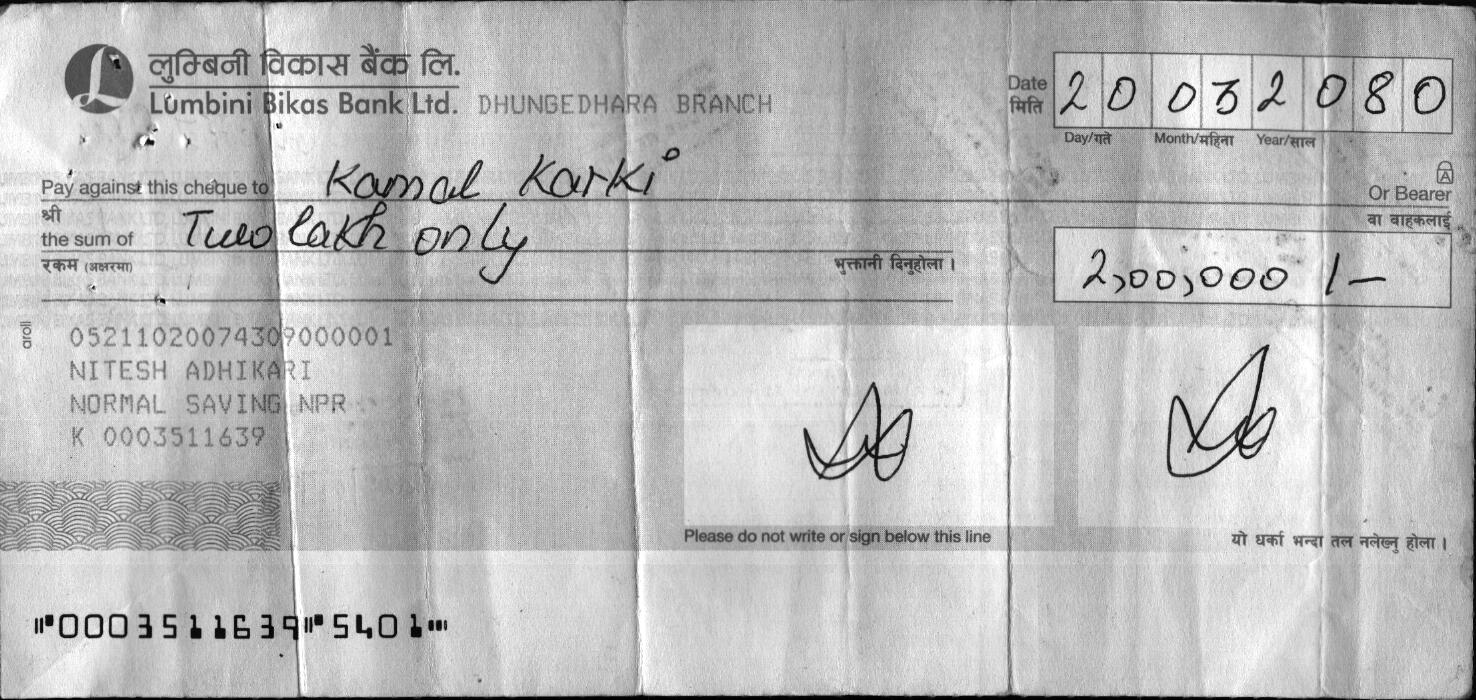 लुम्बिनी विकास बैंक लि.
Lumbini Bikas Bank Ltd. DHUNGEDHARA BRANCH
Date
मिति
20 03 2080
Day/गते Month/महिना Year/साल
Pay against this cheque to Kamal Karki Or Bearer
श्री वा वाहकलाई
the sum of Two lakh only
रकम (अक्षरमा) भुक्तानी दिनुहोला । 2,00,000 /-
05211020074309000001
NITESH ADHIKARI
NORMAL SAVING NPR
K 0003511639
Please do not write or sign below this line यो धर्का भन्दा तल नलेख्नु होला ।
⑈0003511639⑈5401⑉